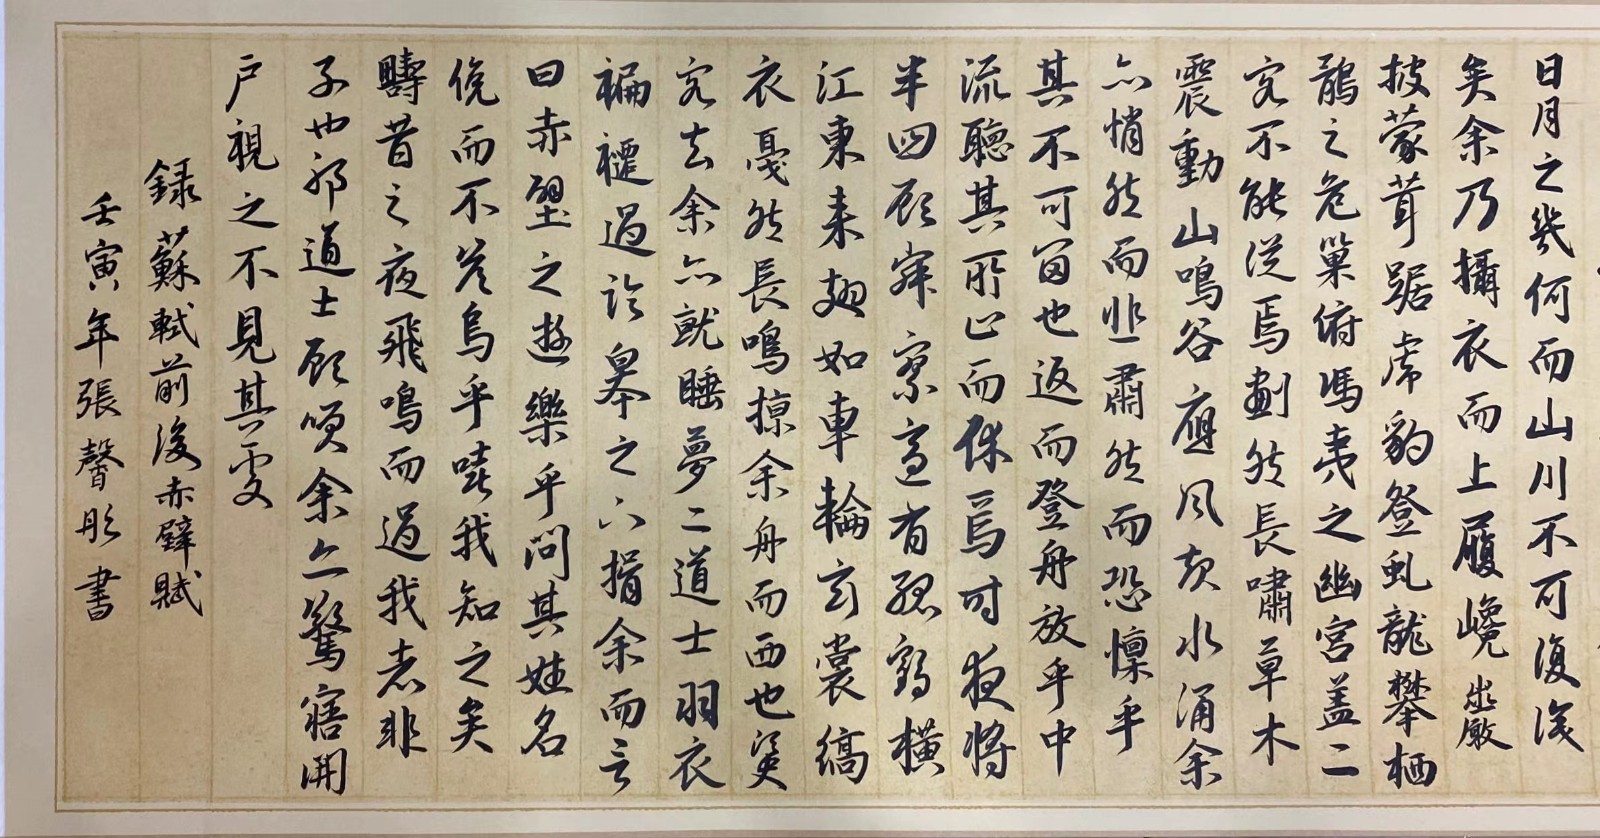 日月之幾何而山川不可復識
矣余乃攝衣而上履巉巖
披蒙茸踞虎豹登虬龍攀栖
鶻之危巢俯馮夷之幽宮盖二
客不能從焉劃然長嘯草木
震動山鳴谷應風起水涌余
亦悄然而悲肅然而恐懍乎
其不可留也返而登舟放乎中
流聽其所止而休焉時夜將
半四顧寂寥適有孤鶴橫
江東来翅如車輪玄裳縞
衣戛然長鳴掠余舟而西也
客去余亦就睡夢二道士羽衣
褊褼過临皋之下揖余而言
曰赤壁之遊樂乎問其姓名
俛而不答烏乎嘻我知之矣
疇昔之夜飛鳴而過我者非
子也邪道士顧笑余亦驚寤開
户視之不見其處
録蘇軾前後赤壁賦
壬寅年張馨彤書